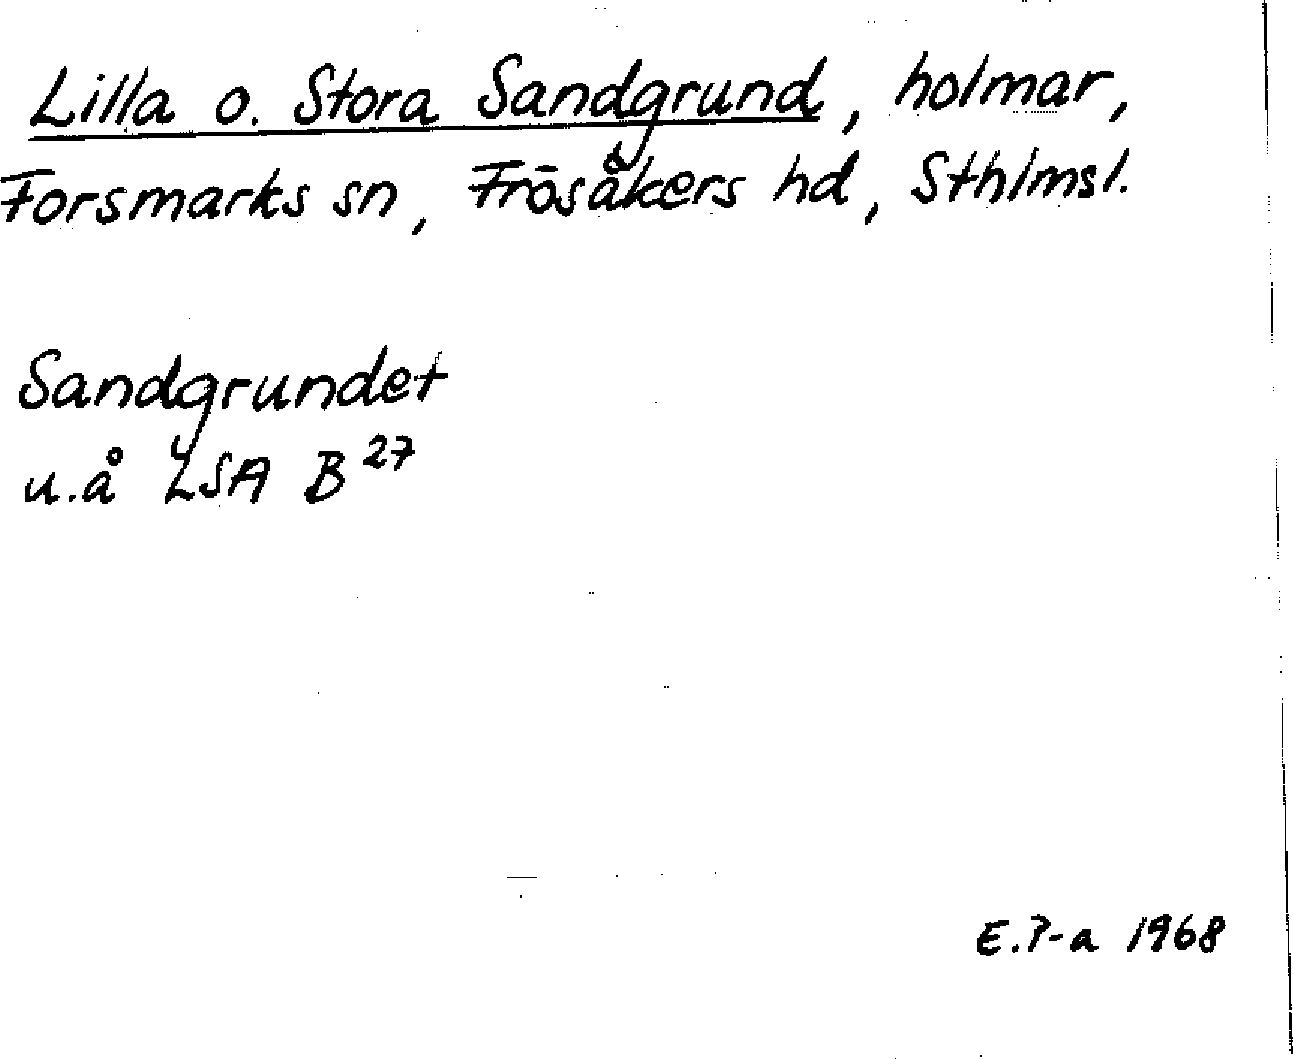 Lilla o. Stora Sandgrund, holmar,
Forsmarks sn, Frösåkers hd, Sthlmsl.
Sandgrundet
u.å LSA B 27
E.P-a 1968